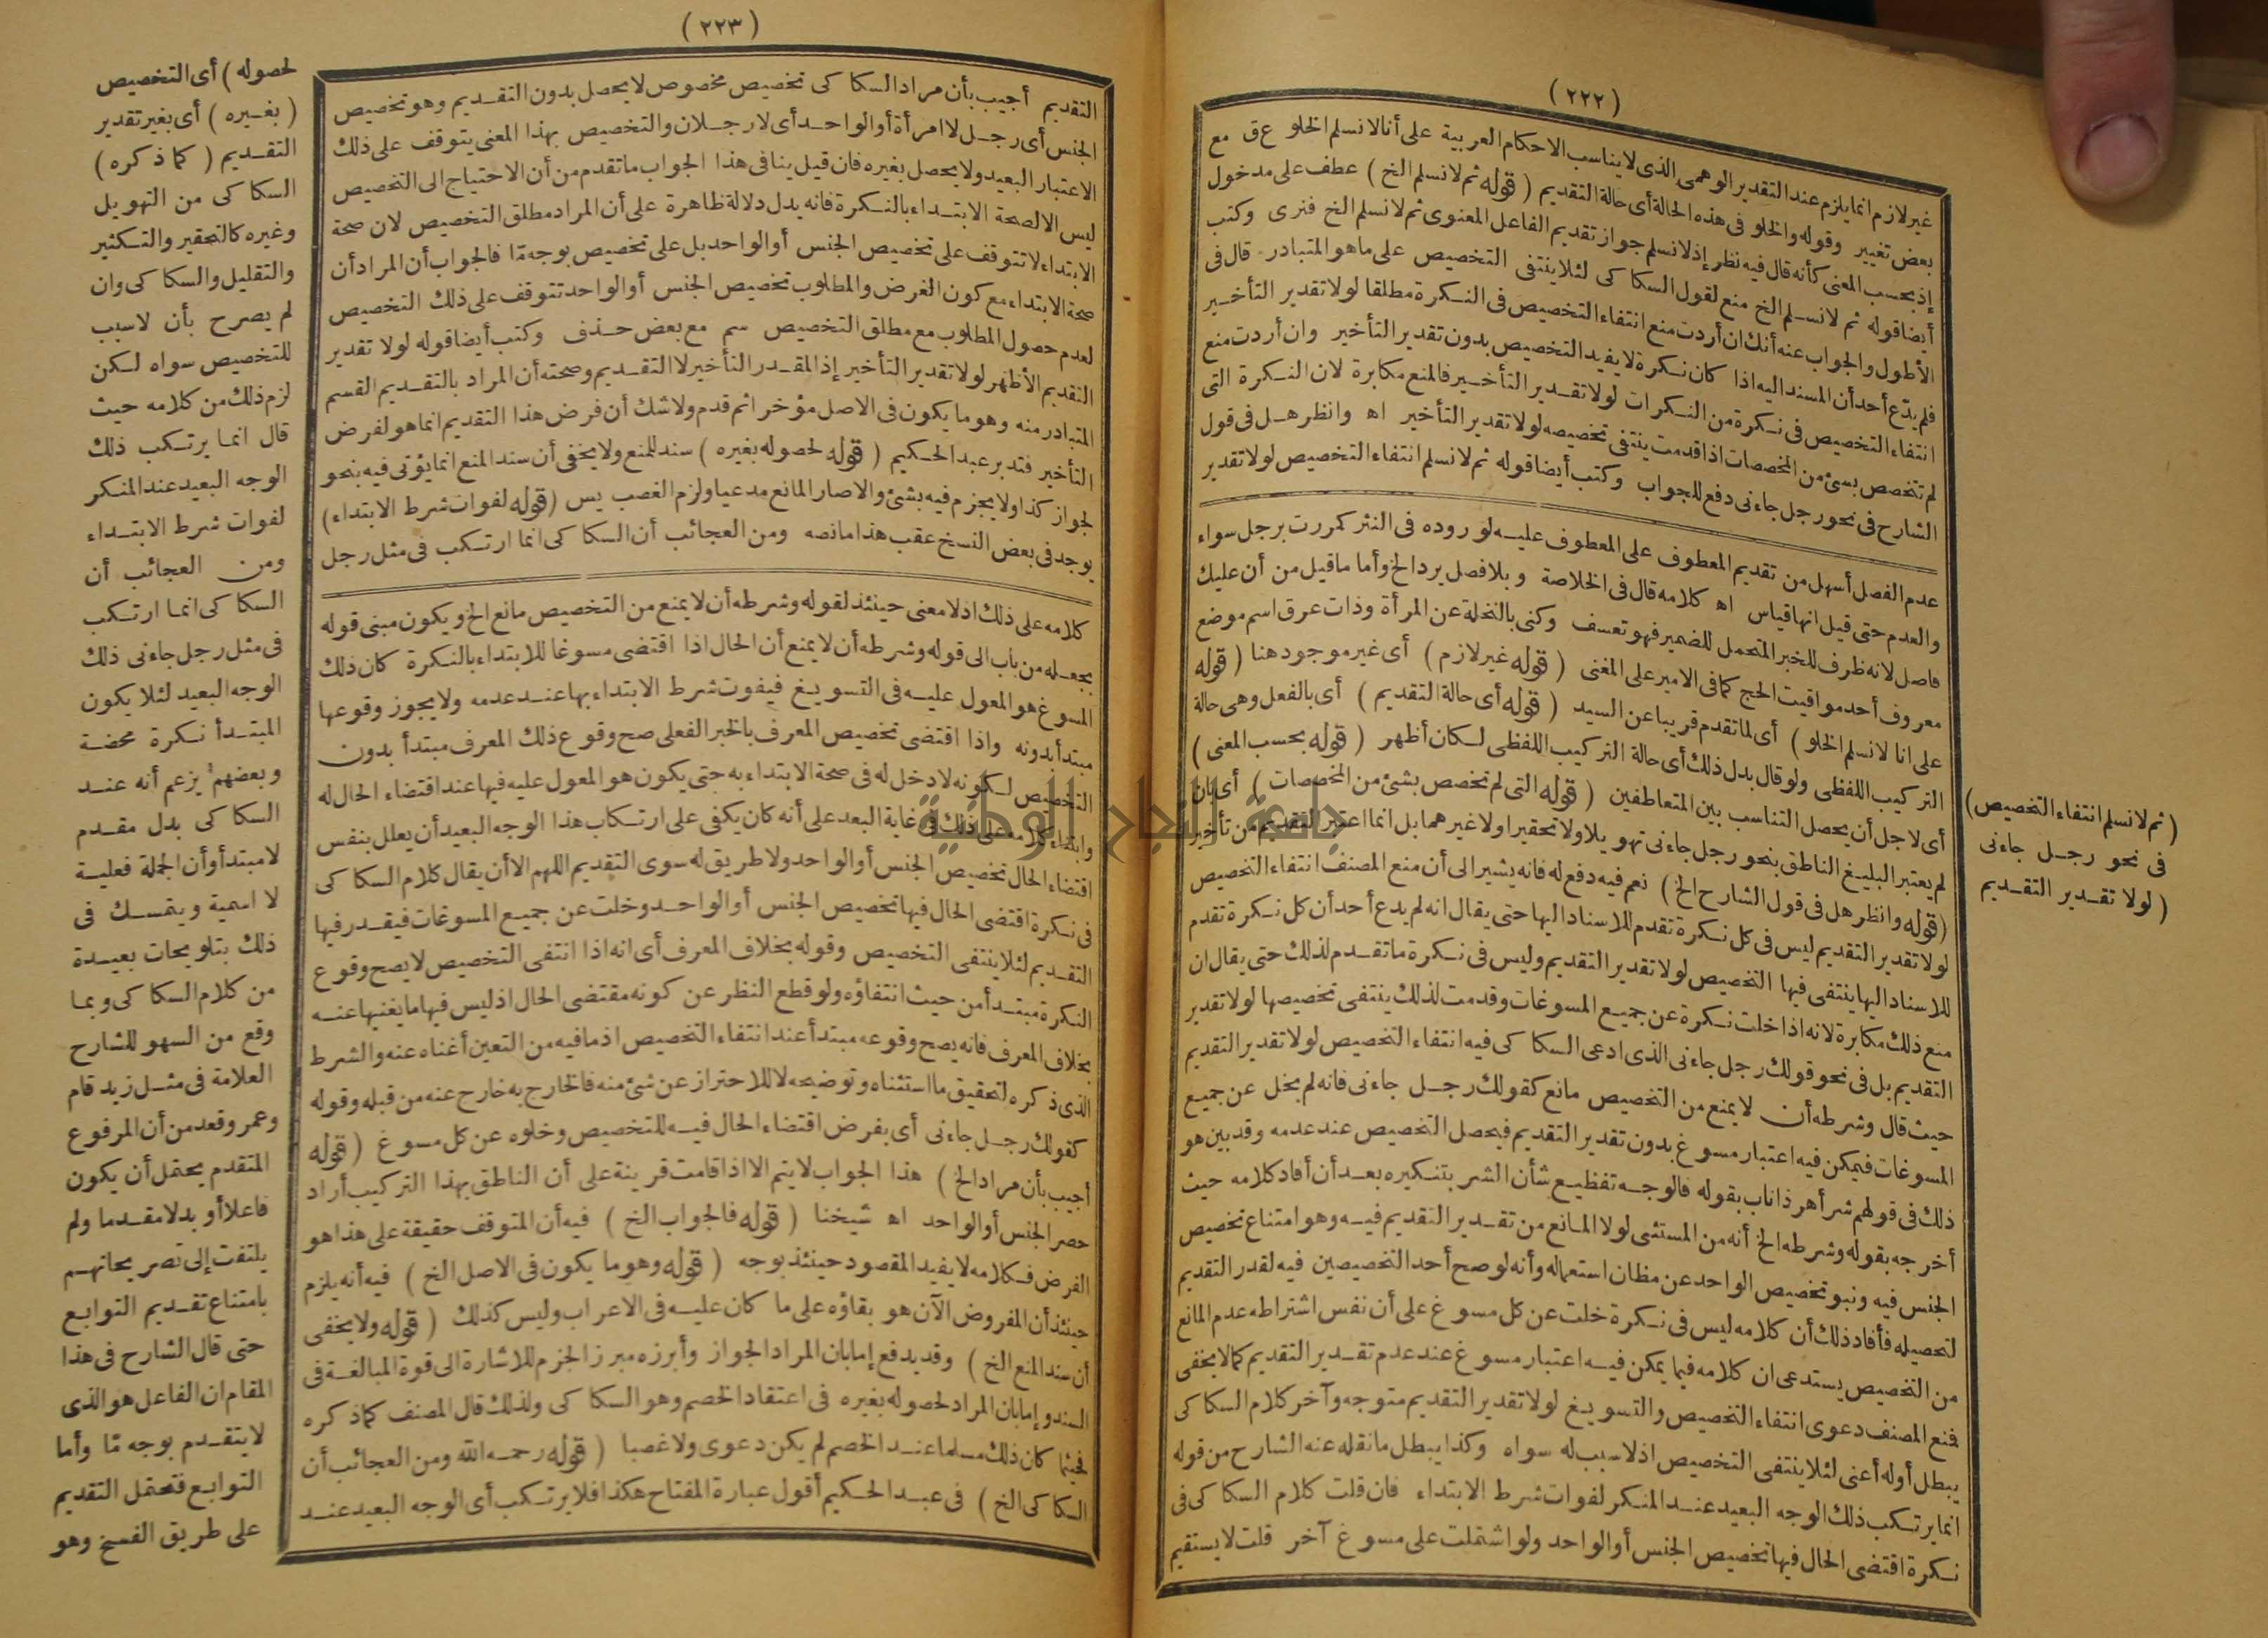 (٢٢٢)
غير لازم انما يلزم عند التقدير الوهمى الذى لا يناسب الاحكام العربية على أنا لا نسلم الخلو ع ق مع
بعض تغيير وقوله والخلو فى هذه الحالة أى حالة التقديم (قوله ثم لا نسلم الخ) عطف على مدخول
إذ بحسب المعنى كأنه قال فيه نظر إذ لا نسلم جواز تقديم الفاعل المعنوى ثم لا نسلم الخ فنرى وكتب
أيضا قوله ثم لا نسلم الخ منع لقول السكاكى لئلا ينتفى التخصيص على ما هو المتبادر قال فى
الأطول والجواب عنه أنك ان أردت منع انتفاء التخصيص فى النكرة مطلقا لولا تقدير التأخير
فلم يدّع أحد أن المسند اليه اذا كان نكرة لا يفيد التخصيص بدون تقدير التأخير وان أردت منع
انتفاء التخصيص فى نكرة من النكرات لولا تقدير التأخير فالمنع مكابرة لان النكرة التى
لم تتخصص بشئ من المخصصات اذا قدمت ينتفى تخصيصه لولا تقدير التأخير اه وانظر هل فى قول
الشارح فى نحو رجل جاءنى دفع للجواب وكتب أيضا قوله ثم لا نسلم انتفاء التخصيص لولا تقدير
عدم الفصل أسهل من تقديم المعطوف على المعطوف عليه لوروده فى النثر كمررت برجل سواء
والعدم حتى قيل انها قياس اه كلامه قال فى الخلاصة وبلا فصل يرد الخ وأما ما قيل من أن عليك
فاصل لانه ظرف للخبر المتحمل للضمير فهو تعسف وكنى بالنخلة عن المرأة وذات عرق اسم موضع
معروف أحد مواقيت الحج كما فى الامير على المغنى (قوله غير لازم) أى غير موجود هنا (قوله
على انا لا نسلم الخلو) أى لما تقدم قريبا عن السيد (قوله أى حالة التقديم) أى بالفعل وهى حالة
التركيب اللفظى ولو قال بدل ذلك أى حالة التركيب اللفظى لكان أظهر (قوله بحسب المعنى)
أى لاجل أن يحصل التناسب بين المتعاطفين (قوله التى لم تخصص بشئ من المخصصات) أى بان
لم يعتبر البليغ الناطق بنحو رجل جاءنى تهويلا ولا تحقيرا ولا غيرهما بل انما اعتبر التقديم من تأخير
(قوله وانظر هل فى قول الشارح الخ) نعم فيه دفع له فانه يشير الى أن منع المصنف انتفاء التخصيص
لولا تقدير التقديم ليس فى كل نكرة تقدم للاسناد اليها حتى يقال انه لم يدع أحد أن كل نكرة تقدم
للاسناد اليها ينتفى فيها التخصيص لولا تقدير التقديم وليس فى نكرة ما تقدم لذلك حتى يقال ان
منع ذلك مكابرة لانه اذا خلت نكرة عن جميع المسوغات وقدمت لذلك ينتفى تخصيصها لولا تقدير
التقديم بل فى نحو قولك رجل جاءنى الذى ادعى السكاكى فيه انتفاء التخصيص لولا تقدير التقديم
حيث قال وشرطه أن لا يمنع من التخصيص مانع كقولك رجل جاءنى فانه لم يخل عن جميع
المسوغات فيمكن فيه اعتبار مسوغ بدون تقدير التقديم فيحصل التخصيص عند عدمه وقد بين هو
ذلك فى قولهم شر أهر ذا ناب بقوله فالوجه تفظيع شأن الشر بتنكيره بعد أن أفاد كلامه حيث
أخرجه بقوله وشرطه الخ أنه من المستثنى لولا المانع من تقدير التقديم فيه وهو امتناع تخصيص
الجنس فيه ونبو تخصيص الواحد عن مظان استعماله وأنه لو صح أحد التخصيصين فيه لقدر التقديم
لتحصيله فأفاد ذلك أن كلامه ليس فى نكرة خلت عن كل مسوغ على أن نفس اشتراطه عدم المانع
من التخصيص يستدعى ان كلامه فيما يمكن فيه اعتبار مسوغ عند عدم تقدير التقديم كما لا يخفى
فمنع المصنف دعوى انتفاء التخصيص والتسويغ لولا تقدير التقديم متوجه وآخر كلام السكاكى
يبطل أوله أعنى لئلا ينتفى التخصيص اذ لا سبب له سواه وكذا يبطل ما نقله عنه الشارح من قوله
انما يرتكب ذلك الوجه البعيد عند المنكر لفوات شرط الابتداء فان قلت كلام السكاكى فى
نكرة اقتضى الحال فيها تخصيص الجنس أو الواحد ولو اشتملت على مسوغ آخر قلت لا يستقيم
(ثم لا نسلم انتفاء التخصيص)
فى نحو رجل جاءنى
(لولا تقدير التقديم
(٢٢٣)
التقديم أجيب بأن مراد السكاكى تخصيص مخصوص لا يحصل بدون التقديم وهو تخصيص
الجنس أى رجل لا امرأة أو الواحد أى لا رجلان والتخصيص بهذا المعنى يتوقف على ذلك
الاعتبار البعيد ولا يحصل بغيره فان قيل ينافى هذا الجواب ما تقدم من أن الاحتياج الى التخصيص
ليس الا لصحة الابتداء بالنكرة فانه يدل دلالة ظاهرة على أن المراد مطلق التخصيص لان صحة
الابتداء لا تتوقف على تخصيص الجنس أو الواحد بل على تخصيص بوجه مّا فالجواب أن المراد أن
صحة الابتداء مع كون الغرض والمطلوب تخصيص الجنس أو الواحد تتوقف على ذلك التخصيص
لعدم حصول المطلوب مع مطلق التخصيص سم مع بعض حذف وكتب أيضا قوله لولا تقدير
التقديم الأظهر لولا تقدير التأخير إذ المقدر التأخير لا التقديم وصحته أن المراد بالتقديم القسم
المتبادر منه وهو ما يكون فى الاصل مؤخرا ثم قدم ولا شك أن فرض هذا التقديم انما هو لفرض
التأخير فتدبر عبد الحكيم (قوله لحصوله بغيره) سند للمنع ولا يخفى أن سند المنع انما يؤتى فيه بنحو
لجواز كذا ولا يجزم فيه بشئ والا صار المانع مدعيا ولزم الغصب يس (قوله لفوات شرط الابتداء)
يوجد فى بعض النسخ عقب هذا ما نصه ومن العجائب أن السكاكى انما ارتكب فى مثل رجل
كلامه على ذلك اذ لا معنى حينئذ لقوله وشرطه أن لا يمنع من التخصيص مانع الخ ويكون مبنى قوله
بجعله من باب الى قوله وشرطه أن لا يمنع أن الحال اذا اقتضى مسوغا للابتداء بالنكرة كان ذلك
المسوغ هو المعول عليه فى التسويغ فيفوت شرط الابتداء بها عند عدمه ولا يجوز وقوعها
مبتدأ بدونه واذا اقتضى تخصيص المعرف بالخبر الفعلى صح وقوع ذلك المعرف مبتدأ بدون
التخصيص لكونه لا دخل له فى صحة الابتداء به حتى يكون هو المعول عليه فيها عند اقتضاء الحال له
وابتناء كلامه على ذلك فى غاية البعد على أنه كان يكفى على ارتكاب هذا الوجه البعيد أن يعلل بنفس
اقتضاء الحال تخصيص الجنس أو الواحد ولا طريق له سوى التقديم اللهم الا أن يقال كلام السكاكى
فى نكرة اقتضى الحال فيها تخصيص الجنس أو الواحد وخلت عن جميع المسوغات فيقدر فيها
التقديم لئلا ينتفى التخصيص وقوله بخلاف المعرف أى انه اذا انتفى التخصيص لا يصح وقوع
النكرة مبتدأ من حيث انتفاؤه ولو قطع النظر عن كونه مقتضى الحال اذ ليس فيها ما يغنيها عنه
بخلاف المعرف فانه يصح وقوعه مبتدأ عند انتفاء التخصيص اذ ما فيه من التعين أغناه عنه والشرط
الذى ذكره لتحقيق ما استثناه وتوضيحه لا للاحتراز عن شئ منه فالخارج به خارج عنه من قبله وقوله
كقولك رجل جاءنى أى بفرض اقتضاء الحال فيه للتخصيص وخلوه عن كل مسوغ (قوله
أجيب بأن مراد الخ) هذا الجواب لا يتم الا اذا قامت قرينة على أن الناطق بهذا التركيب أراد
حصر الجنس أو الواحد اه شيخنا (قوله فالجواب الخ) فيه أن المتوقف حقيقة على هذا هو
الفرض فكلامه لا يفيد المقصود حينئذ بوجه (قوله وهو ما يكون فى الاصل الخ) فيه أنه يلزم
حينئذ أن المفروض الآن هو بقاؤه على ما كان عليه فى الاعراب وليس كذلك (قوله ولا يخفى
أن سند المنع الخ) وقد يدفع إما بان المراد الجواز وأبرزه مبرز الجزم للاشارة الى قوة المبالغة فى
السند وإما بان المراد لحصوله بغيره فى اعتقاد الخصم وهو السكاكى ولذلك قال المصنف كما ذكره
فحيثما كان ذلك مسلما عند الخصم لم يكن دعوى ولا غصبا (قوله رحمه الله ومن العجائب أن
السكاكى الخ) فى عبد الحكيم أقول عبارة المفتاح هكذا فلا يرتكب أى الوجه البعيد عند
لحصوله) أى التخصيص
(بغيره) أى بغير تقدير
التقديم (كما ذكره)
السكاكى من التهويل
وغيره كالتحقير والتكثير
والتقليل والسكاكى وان
لم يصرح بأن لا سبب
للتخصيص سواه لكن
لزم ذلك من كلامه حيث
قال انما يرتكب ذلك
الوجه البعيد عند المنكر
لفوات شرط الابتداء
ومن العجائب أن
السكاكى انما ارتكب
فى مثل رجل جاءنى ذلك
الوجه البعيد لئلا يكون
المبتدأ نكرة محضة
وبعضهم يزعم أنه عند
السكاكى بدل مقدم
لا مبتدأ وأن الجملة فعلية
لا اسمية ويتمسك فى
ذلك بتلويحات بعيدة
من كلام السكاكى وبما
وقع من السهو للشارح
العلامة فى مثل زيد قام
وعمرو قعد من أن المرفوع
المتقدم يحتمل أن يكون
فاعلا أو بدلا مقدما ولم
يلتفت إلى تصريحاتهم
بامتناع تقديم التوابع
حتى قال الشارح فى هذا
المقام ان الفاعل هو الذى
لا يتقدم بوجه مّا وأما
التوابع فتحتمل التقديم
على طريق الفسخ وهو
جامعة النجاح الوطنية